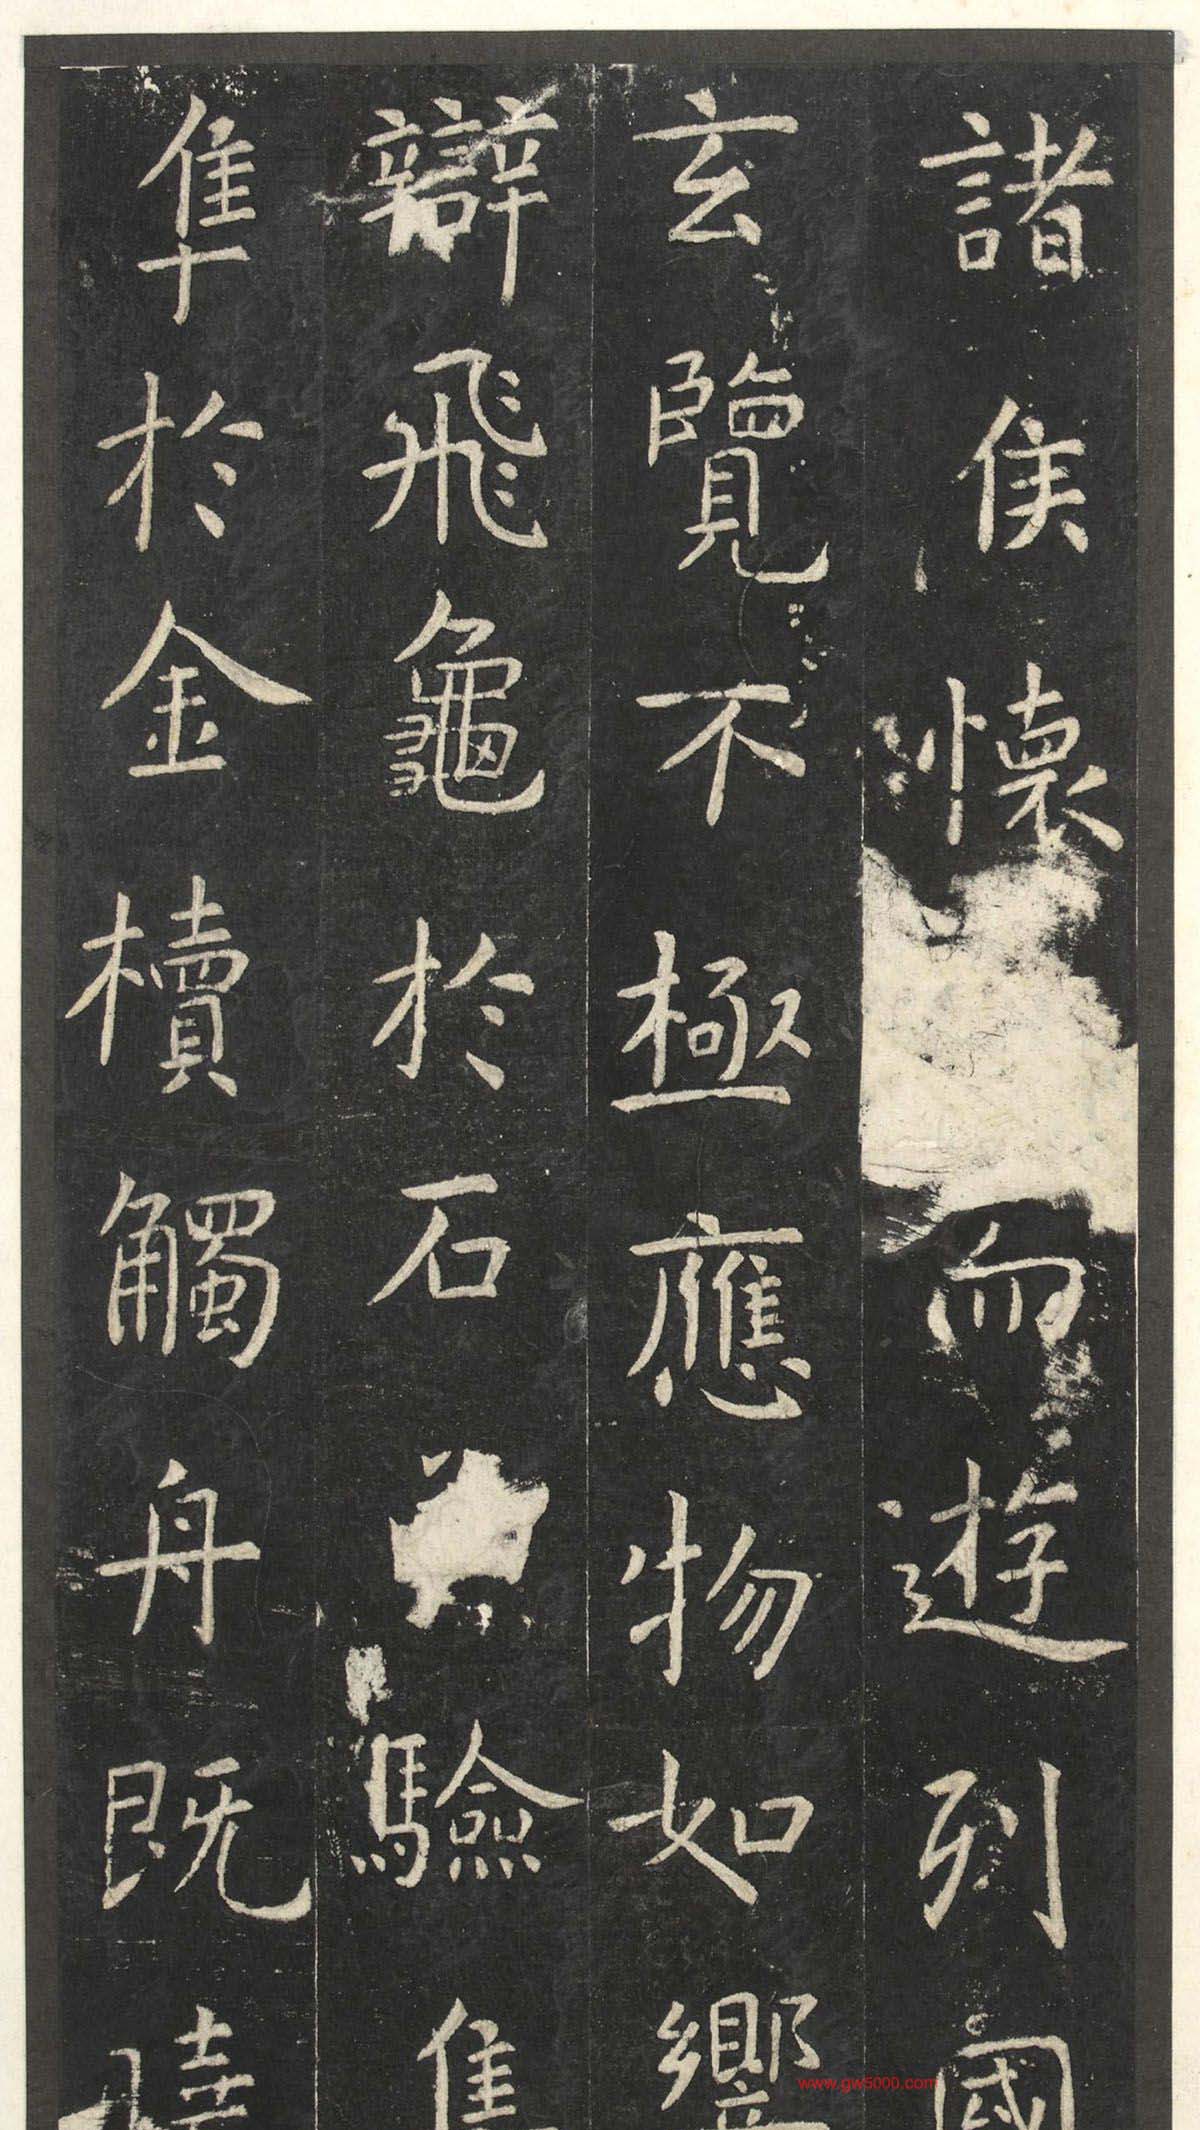 諸侯懷
而遊列國
玄覽不極應物如響
辯飛龜於石
驗隼
隼於金櫝觸舟既
www.gw5000.com